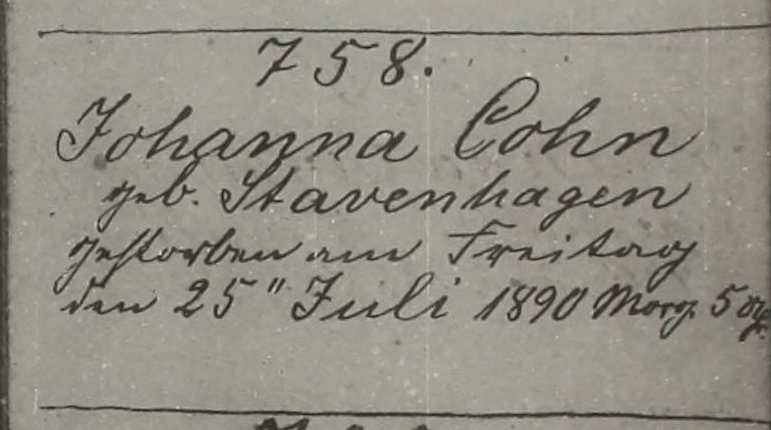 758.
Johanna Cohn
geb. Stavenhagen
gestorben am Freitag
den 25" Juli 1890 Morg. 5